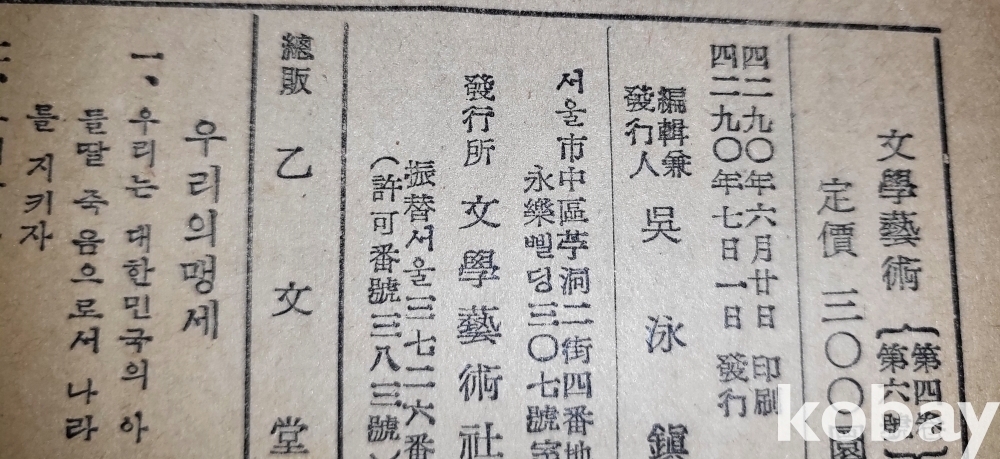 文學藝術
第四卷
第六號
定價 三〇〇圜
四二九〇年六月廿日 印刷
四二九〇年七日一日 發行
編輯兼
發行人 吳泳鎭
서울市中區苧洞二街四番地
永樂삘딩三〇七號室
發行所 文學藝術社
振替서울三七二六番
(許可番號三八三號)
總販 乙文堂
우리의맹세
一、우리는 대한민국의 아
들딸 죽음으로서 나라
를 지키자
kobay